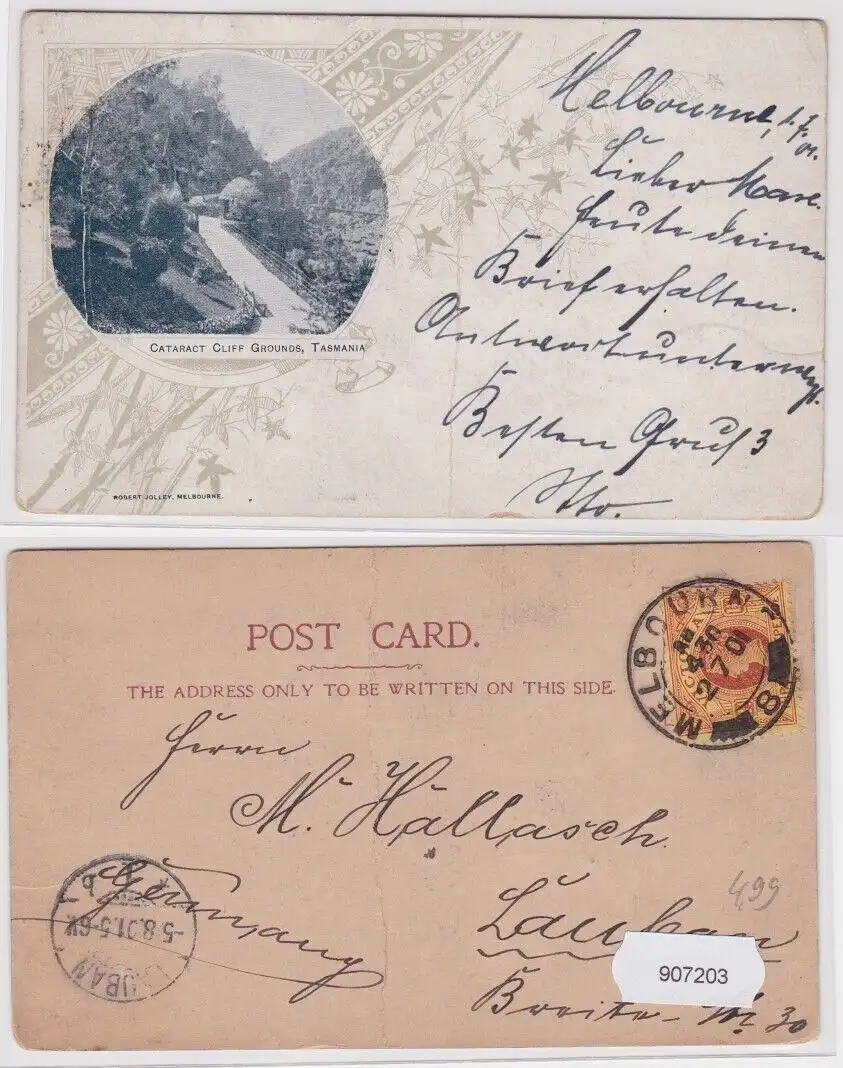 Melbourne, 1.7.
01.
Lieber Max.
heute deinen
Brief erhalten.
Antwort unterwegs.
Besten Gruß
Otto.
CATARACT CLIFF GROUNDS, TASMANIA
ROBERT JOLLEY, MELBOURNE.
POST CARD.
THE ADDRESS ONLY TO BE WRITTEN ON THIS SIDE.
MELBOURNE
AM
4 30
12 7 01
8
Herrn
M. Hallasch.
Germany
Lauban
Breite-Str 30
LAUBAN
-5.8.01.5-6N
b
499
907203